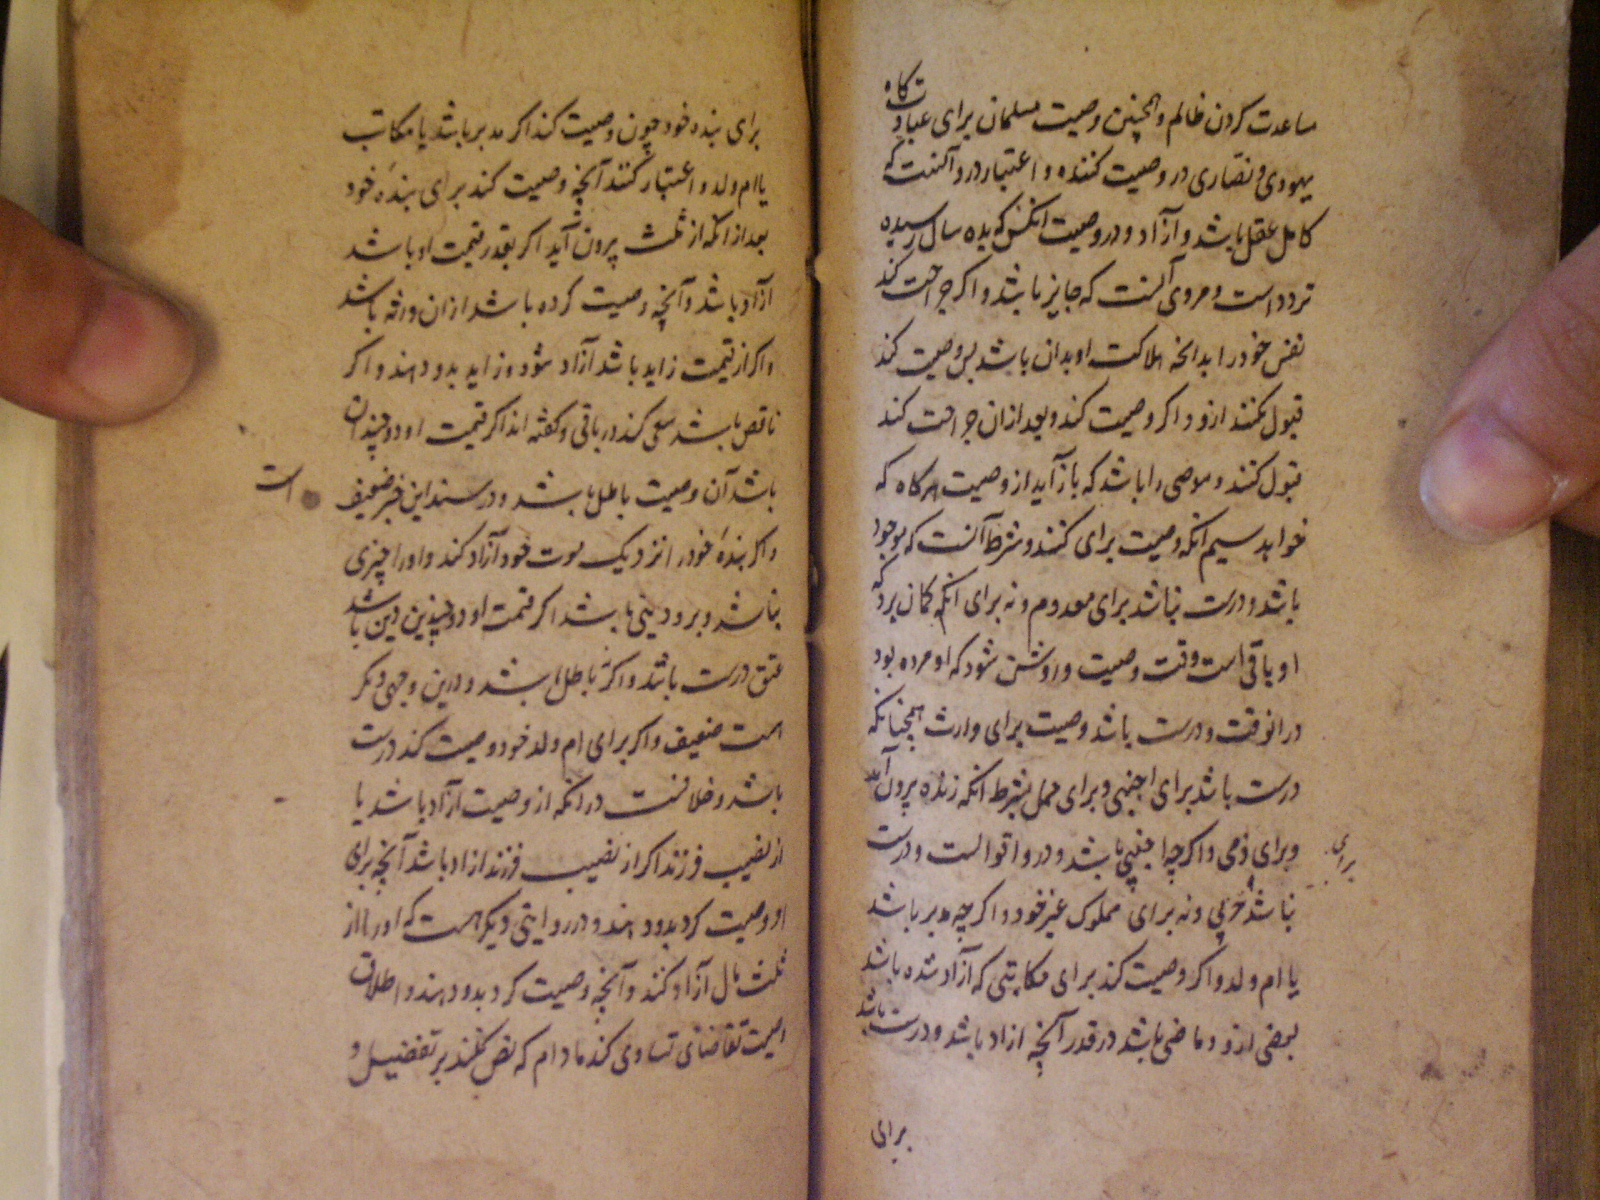 مساعدت کردن ظالم و همچنین وصیت مسلمان برای عبادتکاه
یهودی و نصاری در وصیت کننده و اعتبار درو آنست که
کامل عقل باشد و آزاد و در وصیت انکس که بده سال رسیده
تردد است و مروی آنست که جایز باشد و اکر جراحت کند
نفس خود را بدانچه هلاکت او بدان باشد پس وصیت کند
قبول نکنند ازو و اکر وصیت کند و بعد ازان جراحت کند
قبول کنند و موصی را باشد که باز آید از وصیت هرکاه که
خواهد سیم انکه وصیت برای کنند و شرط آنست که موجود
باشد و درست نباشد برای معدوم و نه برای انکه کمان برد که
او باقی است وقت وصیت و روشن شود که او مرده بود
در انوقت و درست باشد وصیت برای وارث همچنانکه
درست باشد برای اجنبی و برای حمل بشرط انکه زنده بیرون آید
و برای ذمی و اکرچه اجنبی باشد و درو اقوالست و درست
برای
نباشد حربی و نه برای مملوک غیر خود و اکرچه مدبر باشد
یا ام ولد و اکر وصیت کند برای مکاتبی که آزاد شده باشد
بعضی ازو و ماضی باشد در قدر آنچه ازاد باشد و درست باشد
برای
برای بنده خود چون وصیت کند اکر مدبر باشد یا مکاتب
یا ام ولد و اعتبار کنند آنچه وصیت کند برای بنده خود
بعد از انکه از ثلث بیرون آید اکر بقدر قیمت او باشد
آزاد باشد و آنچه وصیت کرده باشد ازان ورثه باشد
و اکر از قیمت زاید باشد آزاد شود و زاید بدو دهند و اکر
ناقص باشد سعی کند در باقی و کفته اند اکر قیمت او دو چندان
باشد آن وصیت باطل باشد و در سند این خبر ضعیف
است
و اکر بنده خود را نزدیک موت خود آزاد کند و او را چیزی
نباشد و برو دینی باشد اکر قیمت او دو چندین دین باشد
عتق درست باشد و اکر نه باطل باشد و درین وجهی دیکر
است ضعیف و اکر برای ام ولد خود وصیت کند درست
باشد و خلافست در انکه از وصیت آزاد باشد یا
از نصیب فرزند اکر از نصیب فرزند ازاد باشد آنچه برای
او وصیت کرد بدو دهند و در روایتی دیکر است که او را از
ثلث مال آزاد کنند و آنچه وصیت کرد بدو دهند و اطلاق
وصیت تقاضای تساوی کند مادام که نص نکند بر تفضیل و